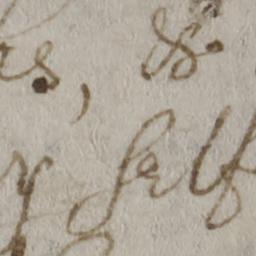 es, &
y self